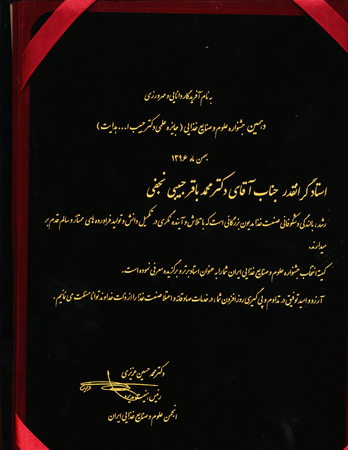 به نام آفریدگار دانایی و مهرورزی
دهمین جشنواره علوم و صنایع غذایی (جایزه علمی دکتر حبیب ا... هدایت)
بهمن ماه ۱۳۹۶
استاد گرانقدر جناب آقای دکتر محمد باقر حبیبی نجفی
رشد، بالندگی و شکوفائی صنعت غذا مدیون بزرگانی است که با تلاش و آینده نگری در تکمیل دانش و تولید فراورده های ممتاز و سالم قدم بر
میدارند.
کمیته انتخاب جشنواره علوم و صنایع غذایی ایران شما را به عنوان استاد برتر و برگزیده معرفی نموده است.
آرزو و امید توفیق در تداوم و پی گیری روز افزون شما، در خدمات صادقانه و اعتلا صنعت غذا را از ذات خداوند توانا مسئلت می نمائیم.
دکتر محمد حسین عزیزی
رئیس هیئت مدیره
انجمن علوم و صنایع غذایی ایران